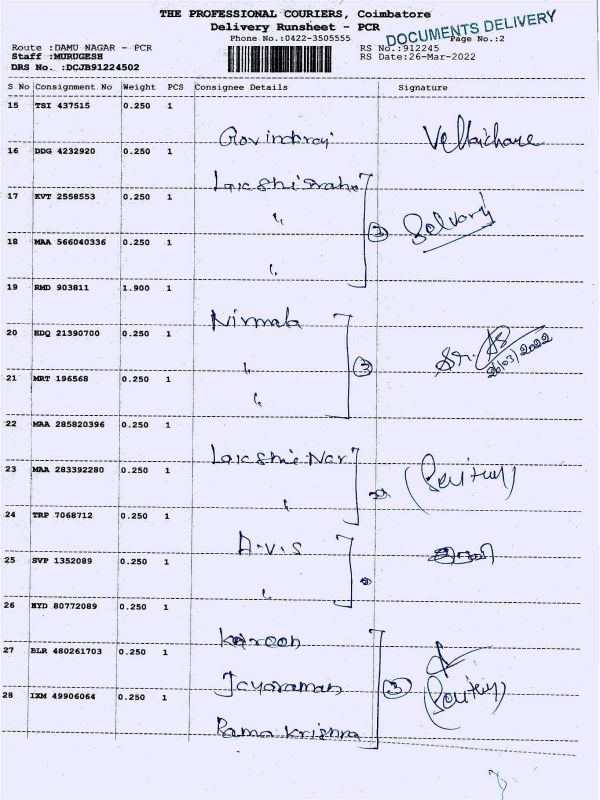 THE PROFESSIONAL COURIERS, Coimbatore
Delivery Runsheet - PCR
DOCUMENTS DELIVERY
Phone No.:0422-3505555 Page No.:2
Route :DAMU NAGAR - PCR RS No.:912245
Staff :MURUGESH RS Date:26-Mar-2022
DRS No. :DCJB91224502
S No Consignment No Weight PCS Consignee Details Signature
15 TSI 437515 0.250 1
Govindraj
16 DDG 4232920 0.250 1
17 KVT 2558553 0.250 1
"
18 MAA 566040336 0.250 1
"
19 RMD 903811 1.900 1
Nirmala
20 EDQ 21390700 0.250 1
" 3 26/03/2022
21 MRT 196568 0.250 1
"
22 MAA 285820396 0.250 1
23 MAA 283392280 0.250 1
"
24 TRP 7068712 0.250 1
A.V.S
25 SVP 1352089 0.250 1
"
26 HYD 80772089 0.250 1
27 BLR 480261703 0.250 1
Jayaraman 3
28 IXM 49906064 0.250 1
Rama Krishna